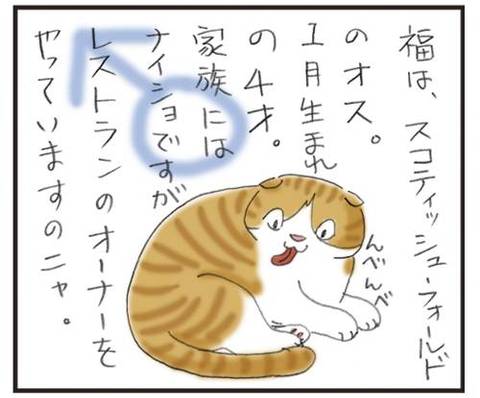 福は、スコティッシュ・フォールド
のオス。
1月生まれ
の4才。
家族には
ナイショですが
レストランのオーナーを
やっていますのニャ。
んべんべ